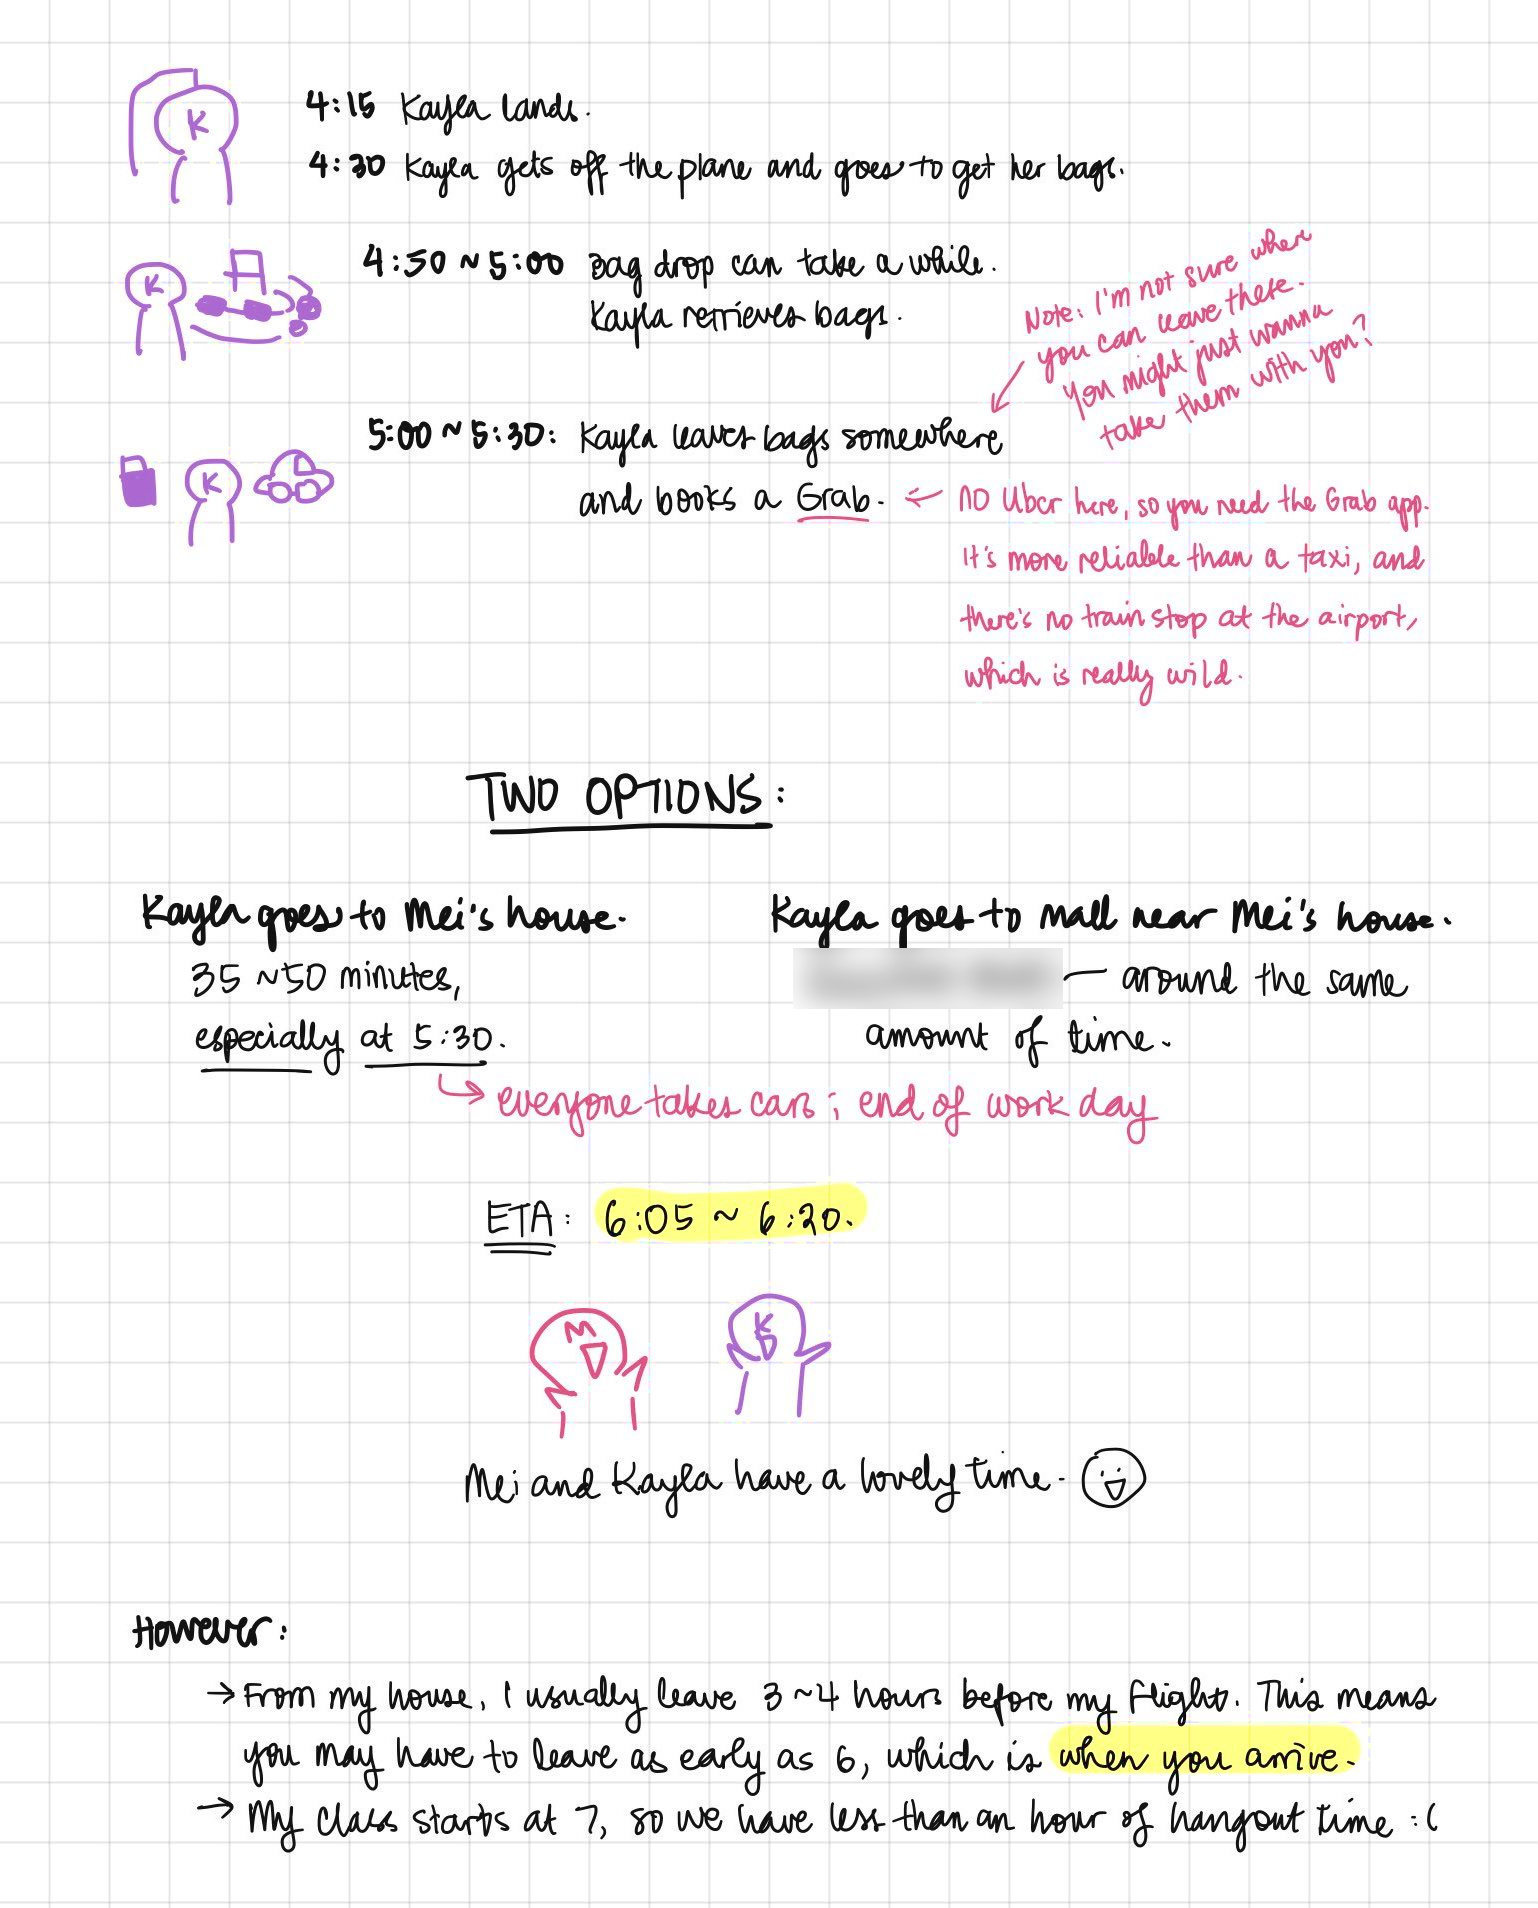 K
4:15 Kayla lands.
4:30 Kayla gets off the plane and goes to get her bags.
K
4:50 ~ 5:00 Bag drop can take a while.
Kayla retrieves bags.
Note: I'm not sure where
you can leave these.
You might just wanna
take them with you?
K
5:00 ~ 5:30: Kayla leaves bags somewhere
and books a Grab.
NO Uber here, so you need the Grab app.
It's more reliable than a taxi, and
there's no train stop at the airport,
which is really wild.
TWO OPTIONS:
Kayla goes to Mei's house.
35 ~50 minutes,
especially at 5:30.
Kayla goes to mall near Mei's house.
— around the same
amount of time.
everyone takes cars; end of work day
ETA: 6:05 ~ 6:20.
M
K
Mei and Kayla have a lovely time.
However:
→ From my house, I usually leave 3 ~4 hours before my flight. This means
you may have to leave as early as 6, which is when you arrive.
→ My class starts at 7, so we have less than an hour of hangout time :(